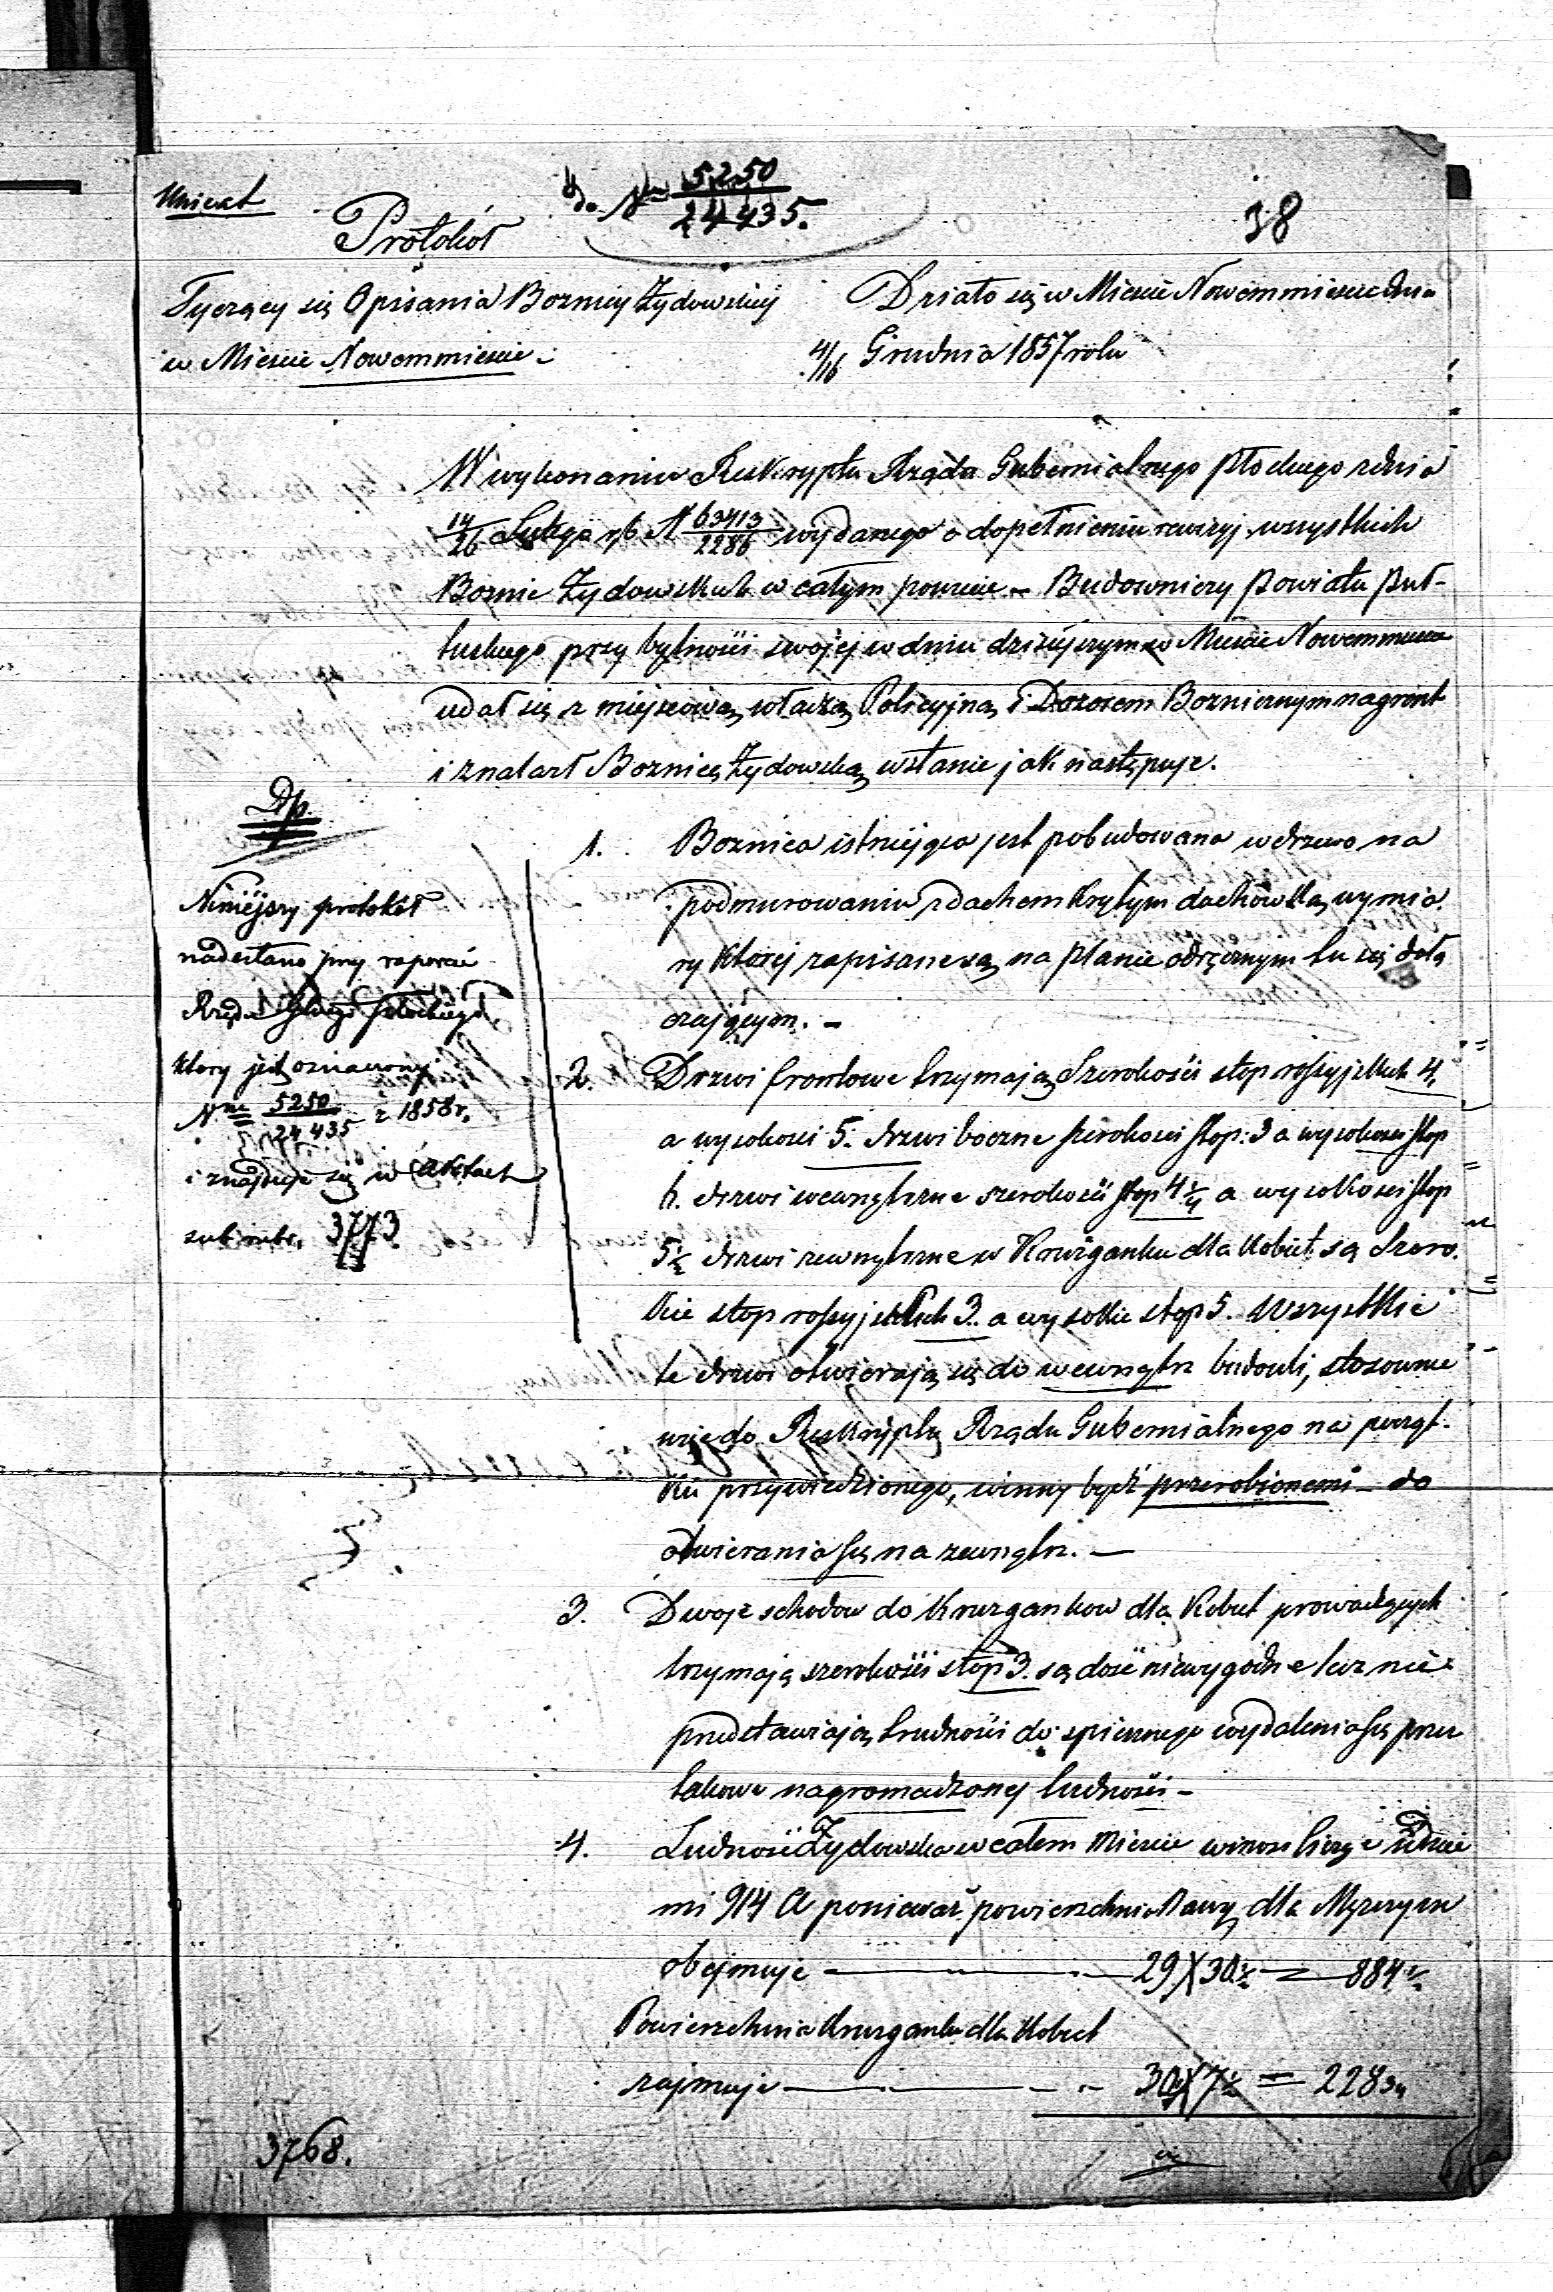 Unicat
do Nru 5250/24435.
38
Protokół
Tyczący się Opisania Boznicy Żydowskiej
w Miescie Nowemmiescie.
Działo się w Miescie Nowemmiescie dnia
4/16 Grudnia 1857 roku
W wykonaniu Reskryptu Rządu Gubernialnego Płockiego z dnia
14/26 Lutego r b N 63413/2286 wydanego o dopełnieniu rewizyj wszystkich
Boznic Żydowskich w całym powiecie – Budowniczy Powiatu Puł-
tuskiego przy bytności swojej w dniu dzisiejszym w Miescie Nowemmiescie
udał się z miejscową władzą Policyjną i Dozorem Bozniczym na grunt
i znalazł Boznicę Żydowską w stanie jak następuje.
1. Boznica istniejąca jest pobudowana w drzewo na
podmurowaniu z dachem krytym dachówką, wymia
ry ktorej zapisane są na planie odręcznym tu się dołą
czającym. –
2. Drzwi frontowe trzymają Szerokości stop rossyjskich 4,
a wysokości 5. drzwi boczne szerokosci stop: 3 a wysokosci stop
6. drzwi wewnętrzne szerokości stop 4 1/4 a wysokosci stop
5 1/2 drzwi zewnętrzne w Kruzganku dla kobiet są Szero.
kie stop rossyjskich 3. a wysokie stop 5. Wszystkie
te drzwi otwierają się do wewnątrz budowli, stosownie
więc do Reskryptu Rządu Gubernialnego na począt.
ku przywiedzionego, winny być przerobionemi – do
otwierania się na zewnątrz. –
3. Dwoje schodow do Kruzgankow dla Kobiet prowadzących
trzymają szerokości stop 3. są dość niewygodne lecz nie
przedstawiają trudności do spiesznego wydalenia się przez
takowe nagromadzonej ludności –
4. Ludność Żydowska w całem Miescie wynosi licząc z dziec
mi 914 A ponieważ powierzchnia Nawy dla Męzczyzn
obejmuje — 29 X 30 1/2 = 884 1/2
Powierzchnia Kruzganku dla Kobiet
zajmuje — 30 1/2 X 7 1/2 = 228 3/4
Dp.
Niniejszy protokół
nadesłano przy raporcie
Rządu Głnego Płockiego,
ktory jest oznaczony
Nrem 5250/24435 z 1858 r,
i znajduje się w Aktach
sub nro, 3773
3768.